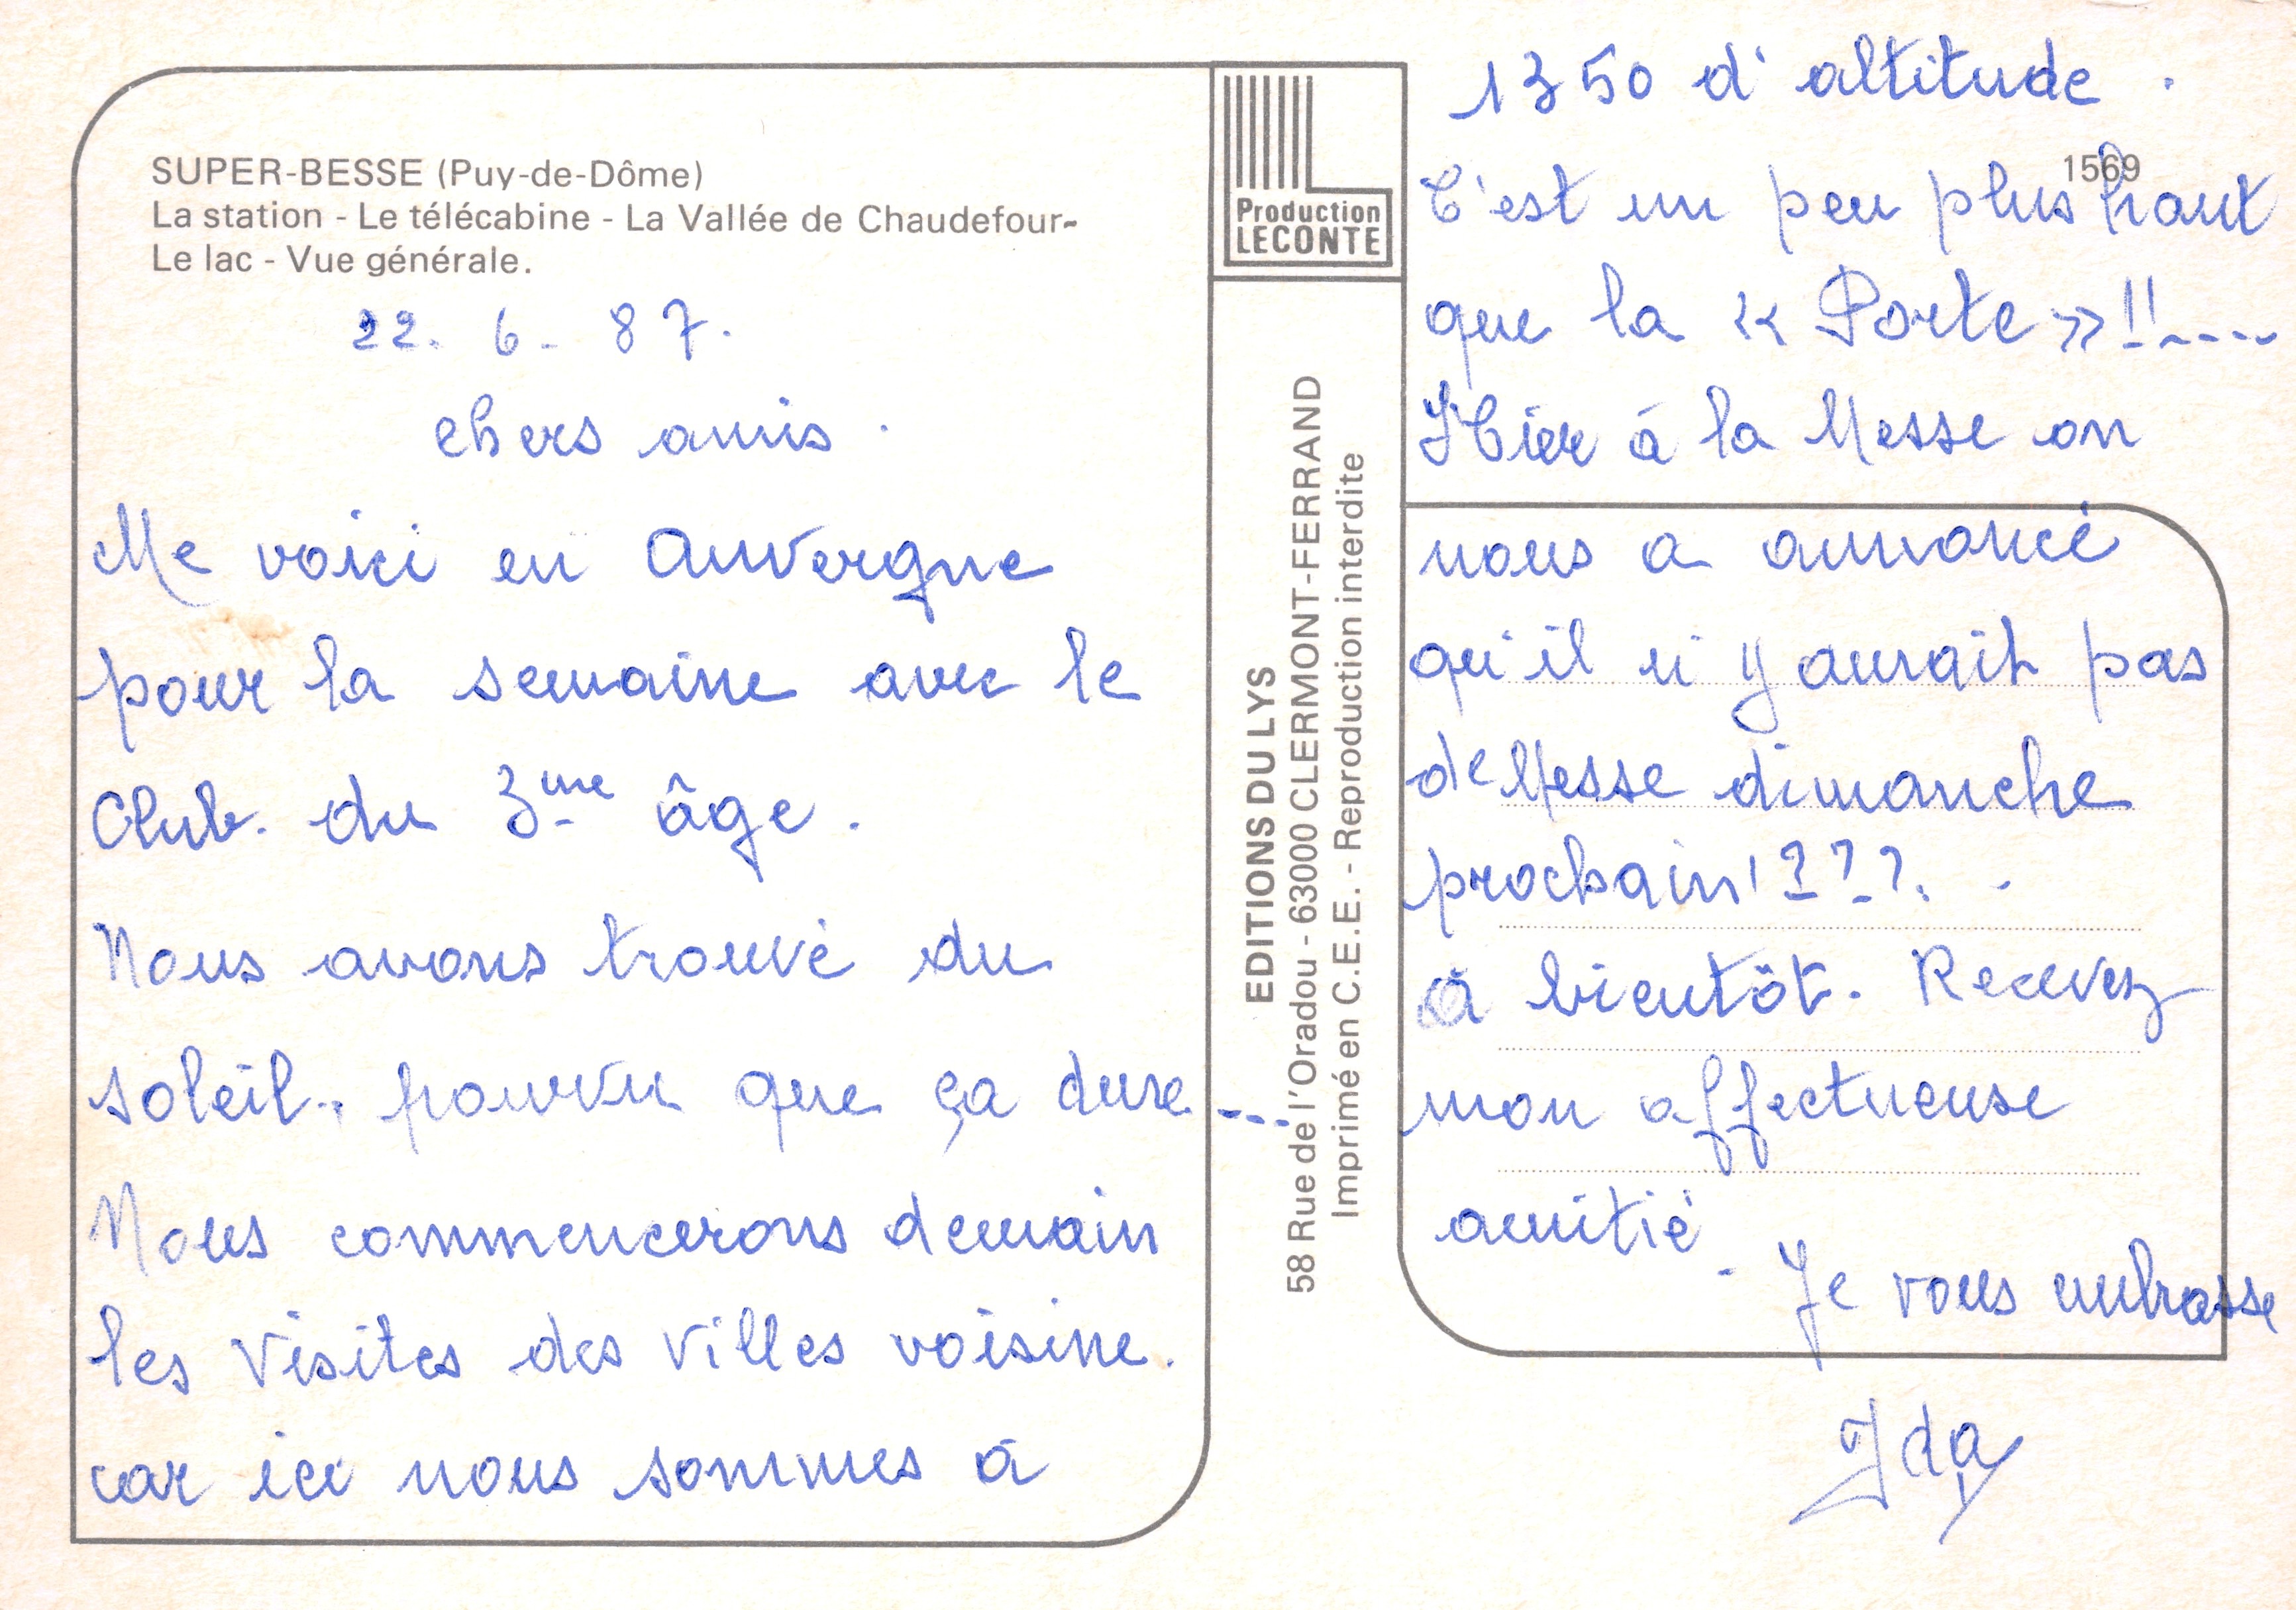 SUPER-BESSE (Puy-de-Dôme)
La station - Le télécabine - La Vallée de Chaudefour-
Le lac - Vue générale.
22. 6. 87.
chers amis.
Me voici en Auvergne
pour la semaine avec le
Club. du 3me âge.
Nous avons trouvé du
soleil.. pourvu que ça dure ...
Nous commencerons demain
les visites des villes voisine.
car ici nous sommes à
Production
LECONTE
EDITIONS DU LYS
58 Rue de l'Oradou - 63000 CLERMONT-FERRAND
Imprimé en C.E.E. - Reproduction interdite
1350 d'altitude.
1569
C'est un peu plus haut
que la « Porte » !!----
Hier à la Messe on
nous a annoncé
qu'il n'y aurait pas
de Messe dimanche
prochain !???. -
à bientôt. Recevez
mon affectueuse
amitié.
Je vous embrasse
Ida